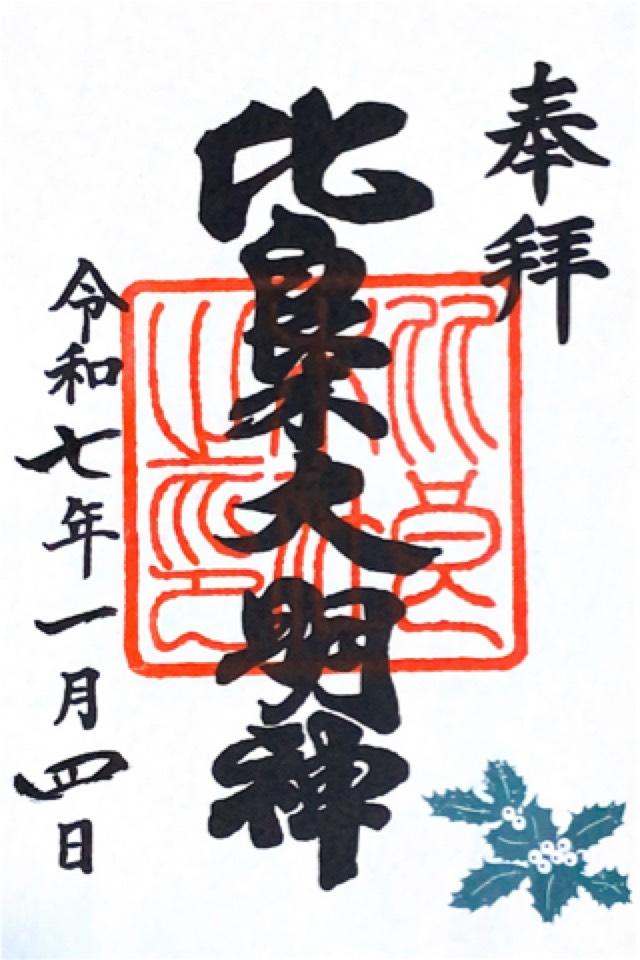 奉拝
比良木大明神
令和七年一月四日